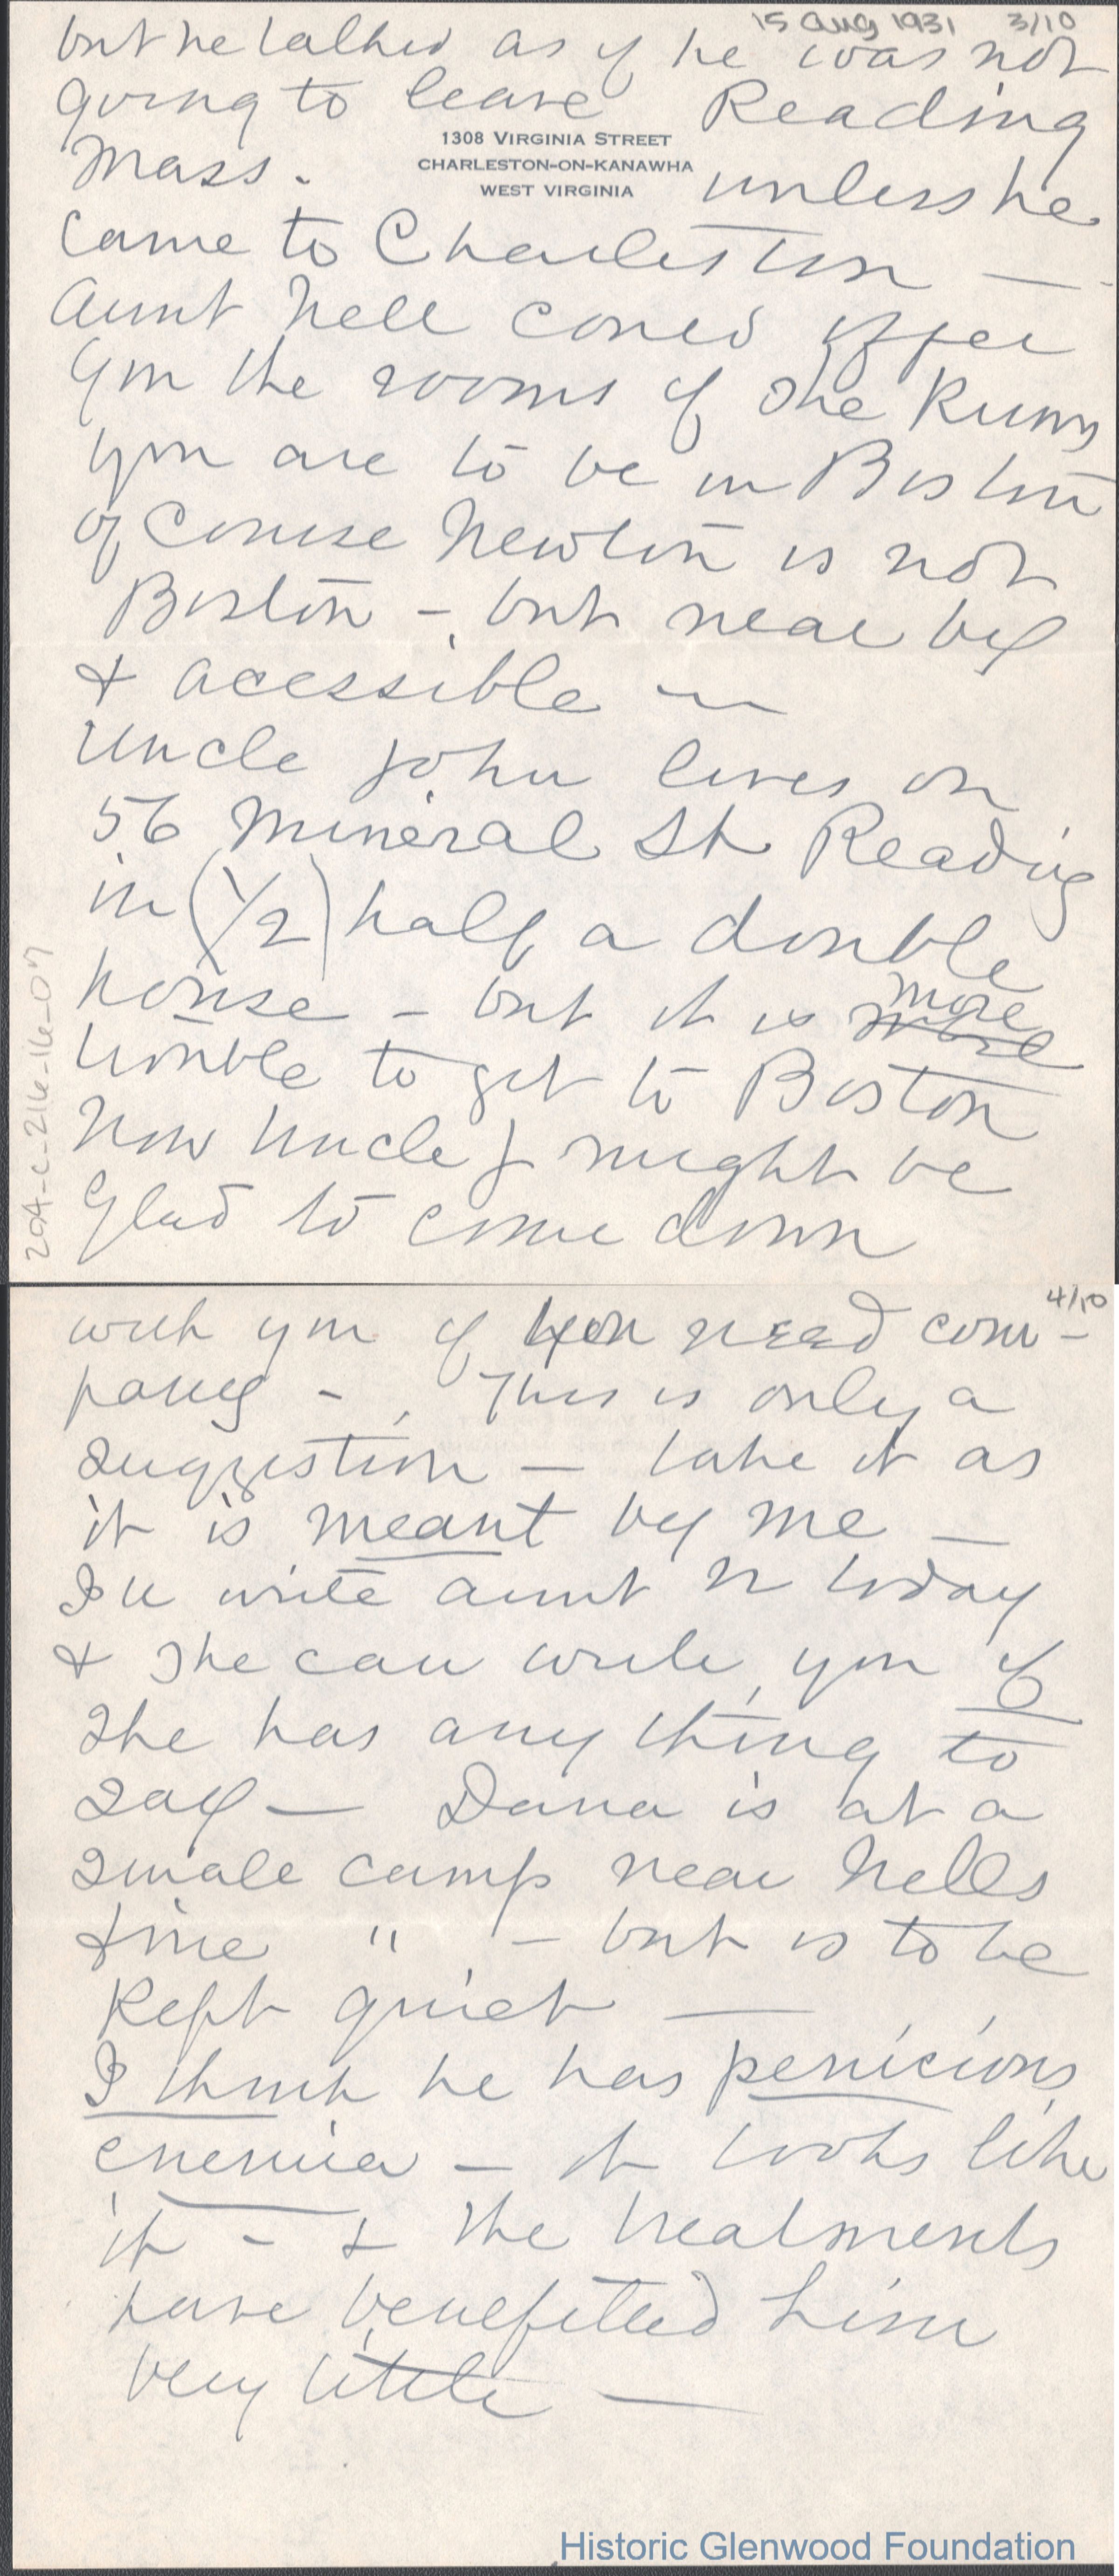 15 Aug 1931 3/10
but he talked as if he was not
going to leave Reading
1308 VIRGINIA STREET
CHARLESTON-ON-KANAWHA
WEST VIRGINIA
Mass. unless he
came to Charleston —
Aunt Nell could offer
you the rooms if she knows
you are to be in Boston
of course Newton is not
Boston - but near by
& acessible
Uncle John lives on
56 Mineral St Reading
in (1/2) half a double
house - but it is more more
trouble to get to Boston
Now Uncle J might be
glad to come down
20A-C-216-16-07
4/10
with you if you need com-
pany - This is only a
suggestion — take it as
it is meant by me —
I'll write aunt N today
& she can write you if
she has any thing to
say — Dana is at a
small camp near Nells
& mine " - but is to be
kept quiet —
I think he has penicious
enemia — it looks like
it - & the treatments
have benefitted him
very little —
Historic Glenwood Foundation